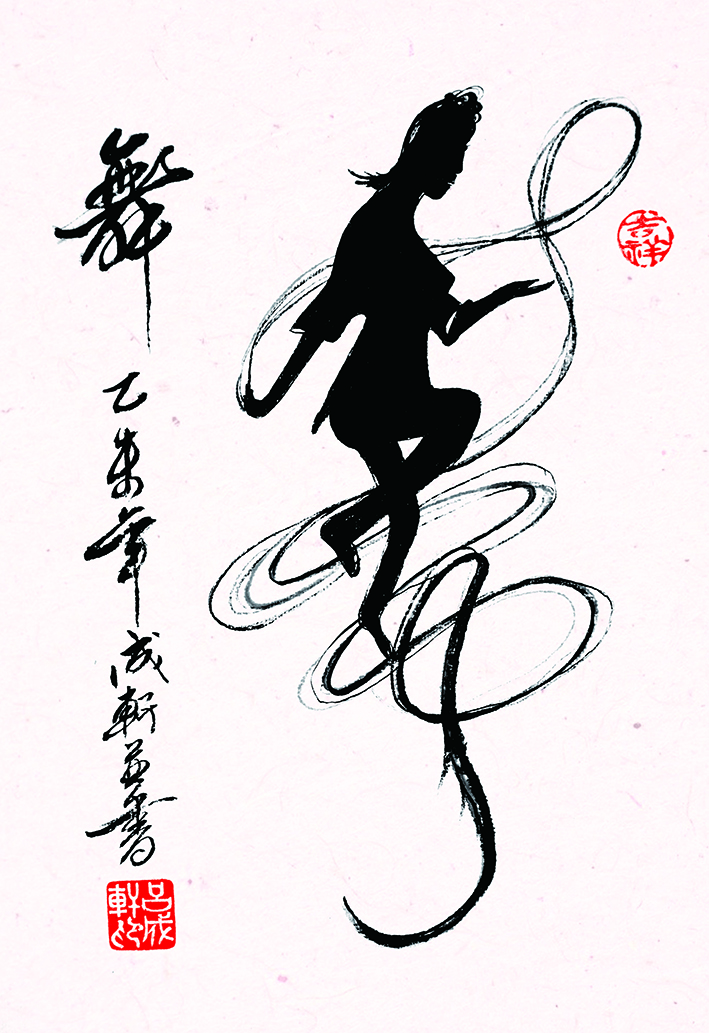 舞
乙未年成軒並書
吉祥
呂成軒印